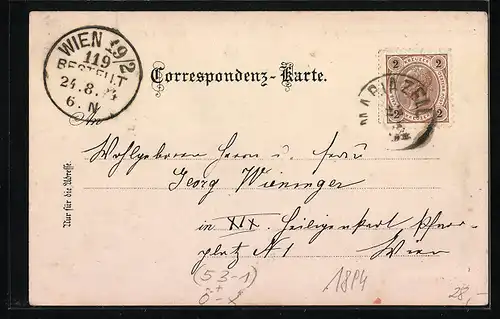 WIEN 19/2
119
BESTELLT
24.8.94
6. N
Correspondenz-Karte.
2 2
KREUZER
2 2
MARIAZELL
An
Wohlgeboren Herrn u. Frau
Georg Wieninger
in XIX. Heiligenstadt Pfarr-
platz N 1 Wien
Nur für die Adresse.
(53-1)
1894
28,-